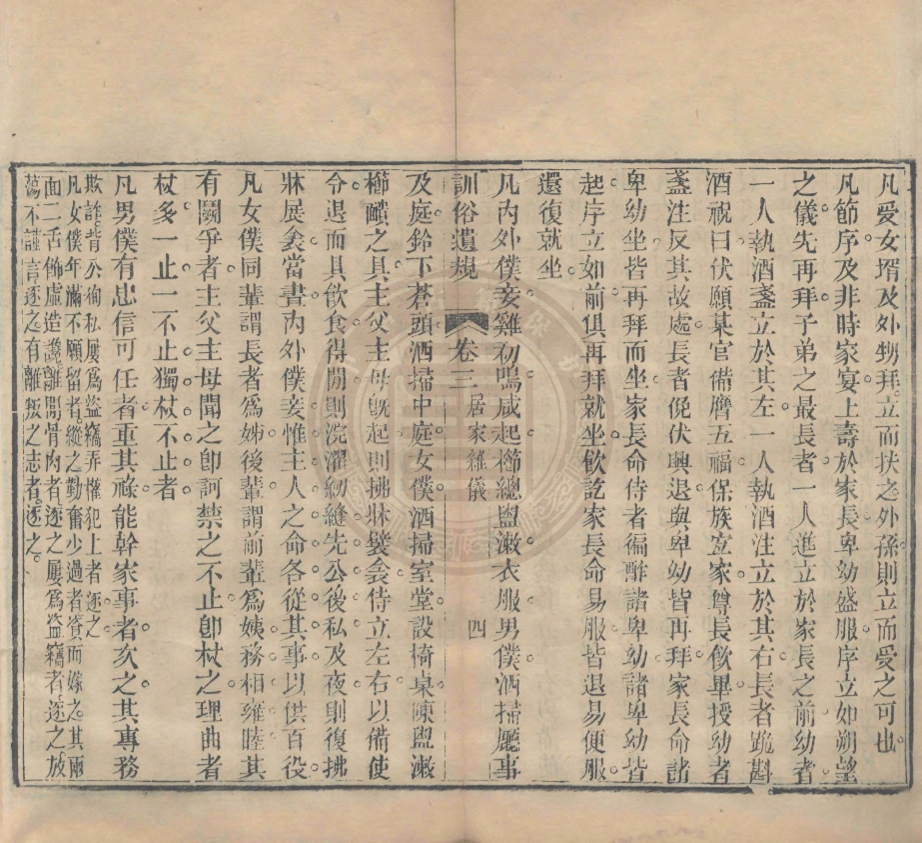 凡愛女壻及外甥拜立而扶之外孫則立而受之可也
凡節序及非時家宴上壽於家長卑幼盛服序立如朔望
之儀先再拜子弟之最長者一人進立於家長之前幼者
一人執酒盞立於其左一人執酒注立於其右長者跪斟
酒祝曰伏願某官備膺五福保族宜家尊長飲畢授幼者
盞注反其故處長者俛伏興退與卑幼皆再拜家長命諸
卑幼坐皆再拜而坐家長命侍者徧酢諸卑幼諸卑幼皆
起序立如前俱再拜就坐飲訖家長命易服皆退易便服
還復就坐
凡內外僕妾雞初鳴咸起櫛總盥漱衣服男僕洒掃廳事
訓俗遺規 卷三 居家雜儀 四
及庭鈴下蒼頭洒掃中庭女僕洒掃室堂設椅桌陳盥漱
櫛靧之具主父主母旣起則拂牀襞衾侍立左右以備使
令退而具飮食得閒則浣濯紉縫先公後私及夜則復拂
牀展衾當晝內外僕妾惟主人之命各從其事以供百役
凡女僕同輩謂長者爲姊後輩謂前輩爲姨務相雍睦其
有鬭爭者主父主母聞之卽訶禁之不止卽杖之理曲者
杖多一止一不止獨杖不止者
凡男僕有忠信可任者重其祿能幹家事者次之其專務
欺詐背公徇私屢爲盜竊弄權犯上者逐之
凡女僕年滿不願留者縱之勤奮少過者資而嫁之其兩
面二舌飾虛造讒離間骨肉者逐之屢爲盜竊者逐之放
蕩不謹者逐之有離叛之志者逐之